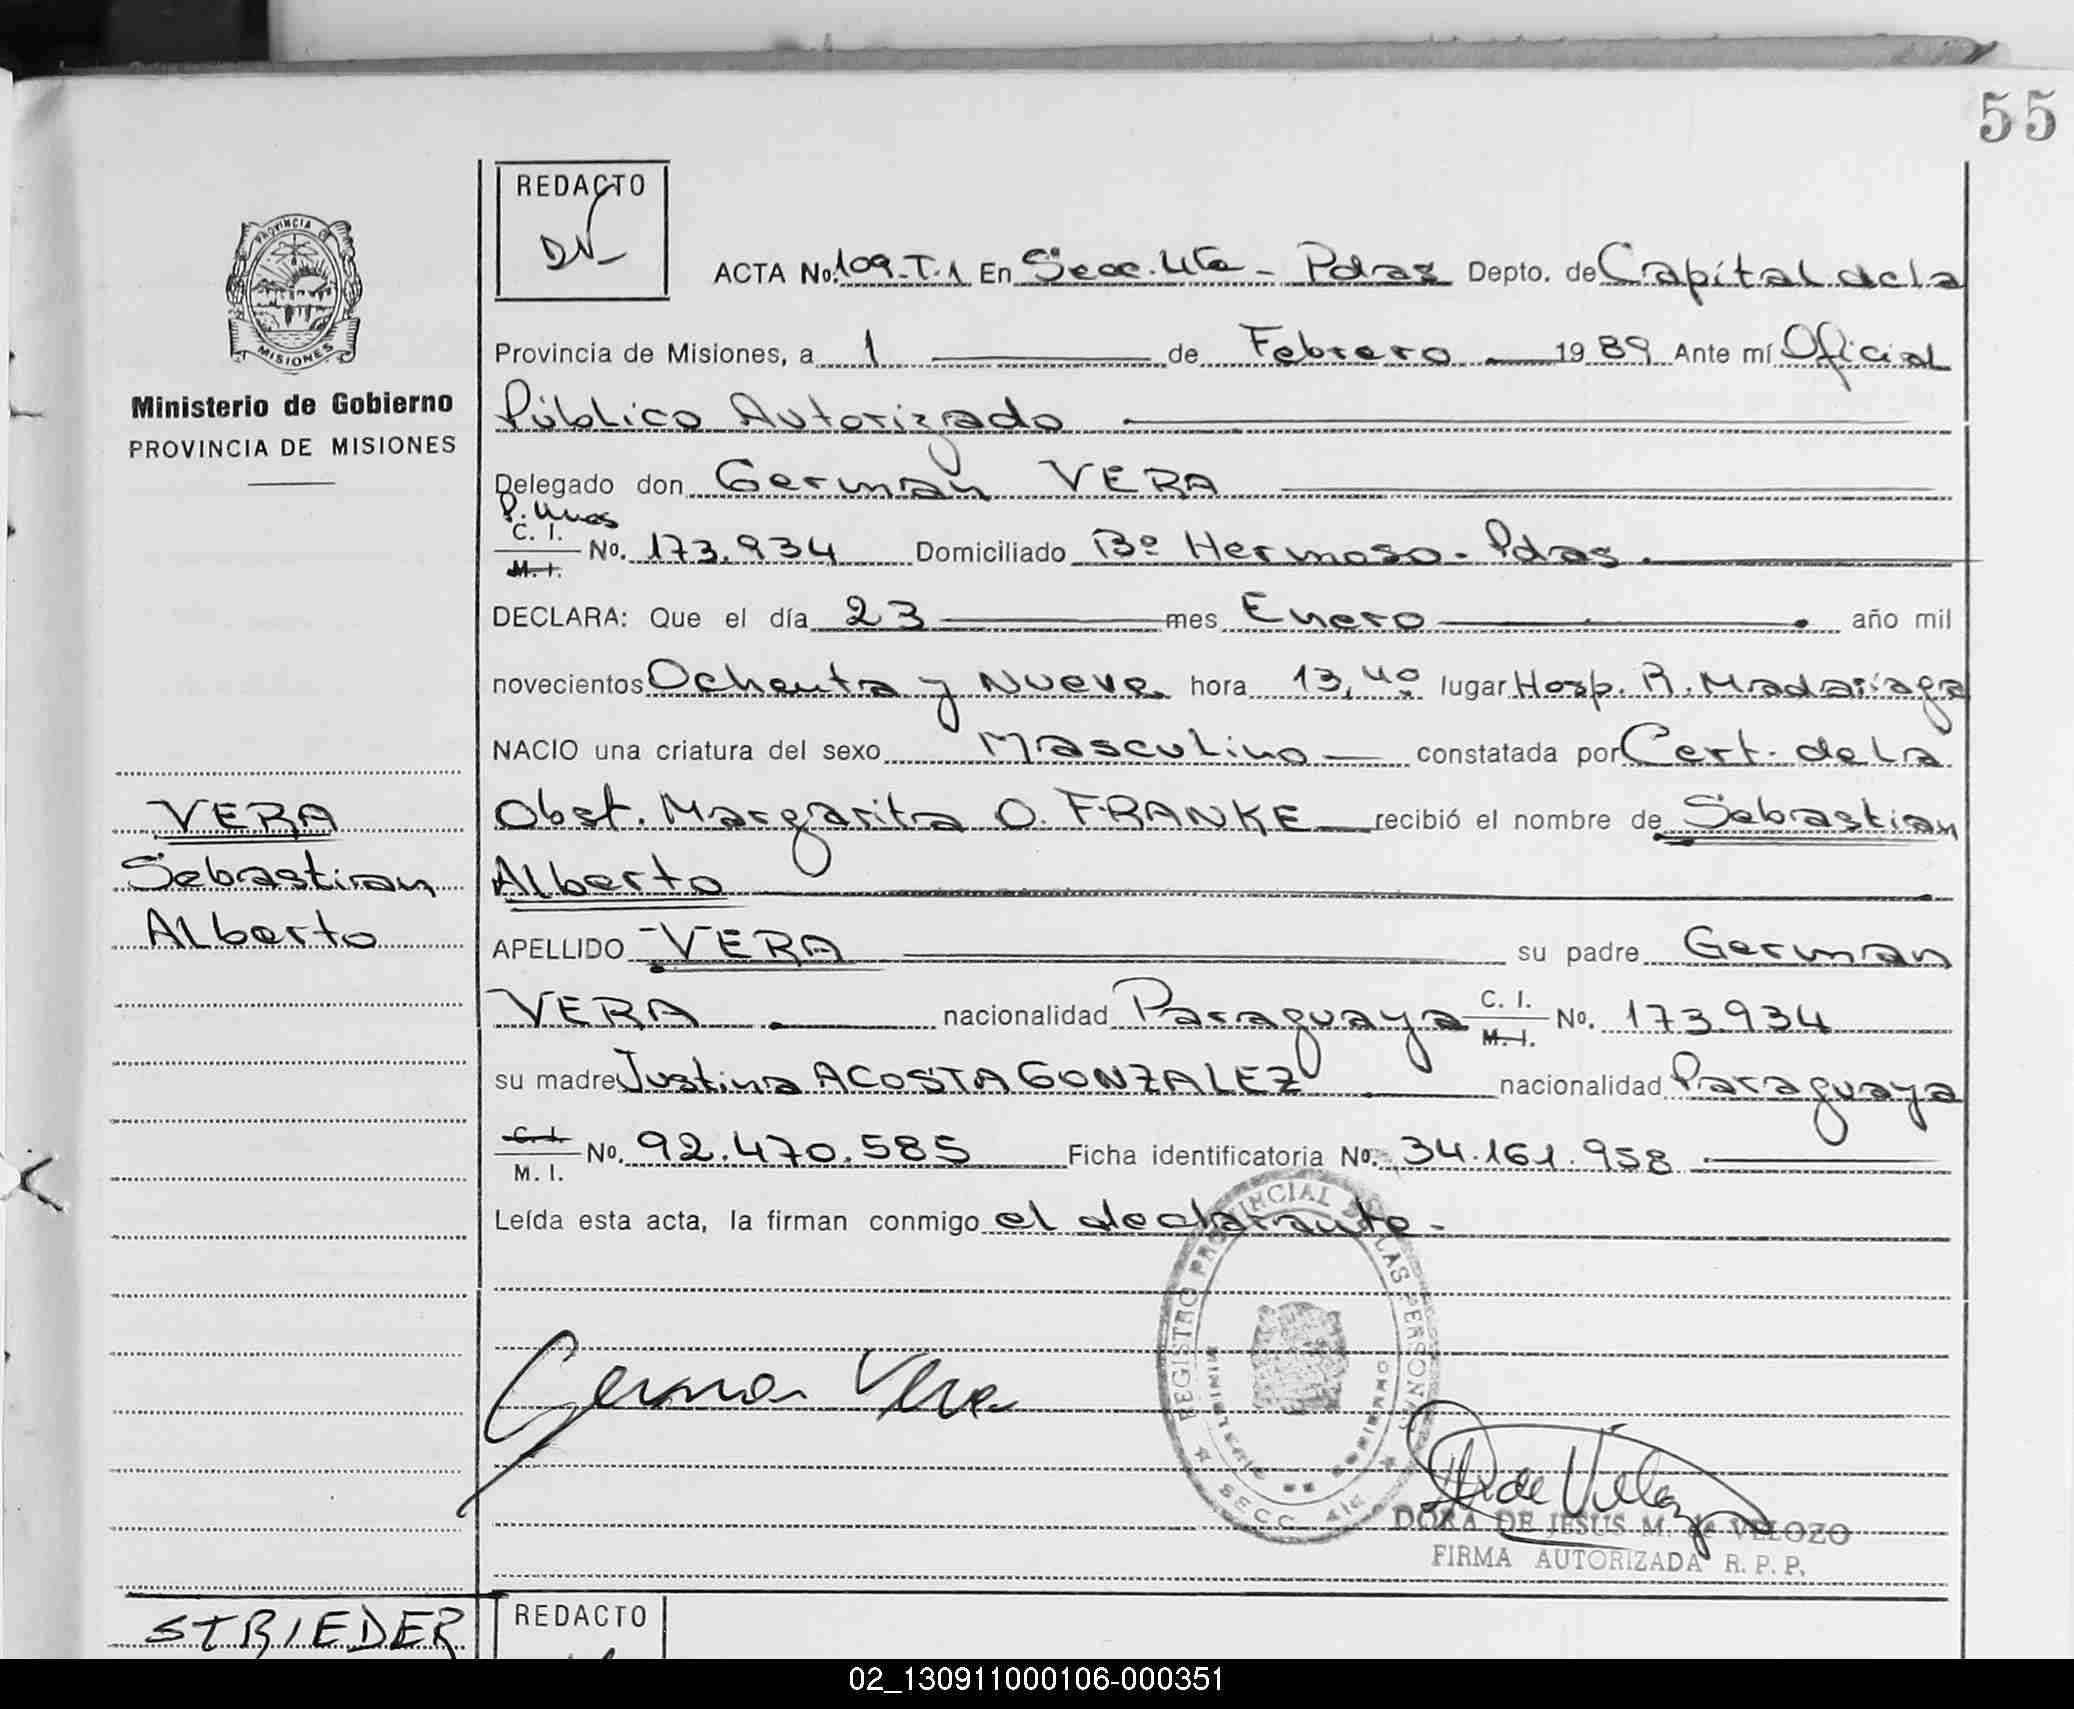 55
REDACTO
DV
PROVINCIA DE
MISIONES
Ministerio de Gobierno
PROVINCIA DE MISIONES
ACTA No. 109-T.1 En Secc. 4ta - Pdas Depto. de Capital de la
Provincia de Misiones, a 1 de Febrero 1989 Ante mí Oficial
Público Autorizado
Delegado don German VERA
C. I. M. I. No. 173.934 Domiciliado Bº Hermoso - Pdas.
DECLARA: Que el día 23 mes Enero año mil
novecientos Ochenta y Nueve hora 13,40 lugar Hosp. R. Madariaga
NACIO una criatura del sexo Masculino constatada por Cert. de la
Obst. Margarita O. FRANKE recibió el nombre de Sebastian
Alberto
APELLIDO VERA su padre German
VERA nacionalidad Paraguaya C. I. M. I. No. 173934
su madre Justina ACOSTA GONZALEZ nacionalidad Paraguaya
C. I. M. I. No. 92.470.585 Ficha identificatoria No. 34.161.958
Leída esta acta, la firman conmigo el declarante.
VERA
Sebastian
Alberto
German Vera
REGISTRO PROVINCIAL DE LAS PERSONAS
MINISTERIO DE GOBIERNO
SECC. 4ta
DORA DE JESUS M. de VELOZO
FIRMA AUTORIZADA R. P. P.
STRIEDER
REDACTO
02_130911000106-000351